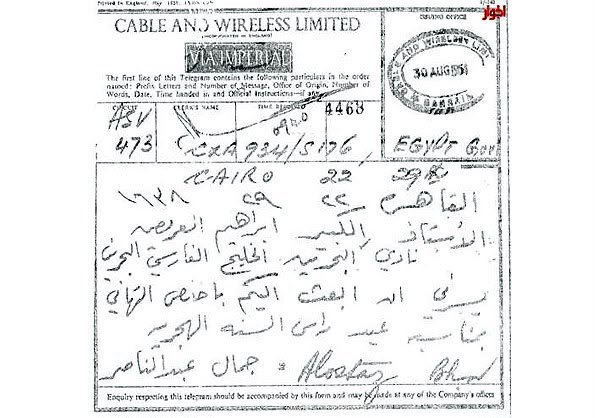 Printed in England. May 1951.
الجوار
ISSUING OFFICE
CABLE AND WIRELESS LIMITED
(INCORPORATED IN ENGLAND)
VIA IMPERIAL
The first line of this Telegram contains the following particulars in the order
named: Prefix Letters and Number of Message, Office of Origin, Number of
Words, Date, Time handed in and Official Instructions—if any.
CABLE AND WIRELESS LTD
30 AUG 1951
BAHRAIN
CIRCUIT CLERK'S NAME TIME RECEIVED 4468
ASV
0920
473 CXA 934/S176 EGYPT Govt
CAIRO 22 29
القاهرة ٢٢ ٢٩ ١٦٣٨
الأستاذ الكبير ابراهيم العريض
نادي البحرين الخليج الفارسي البحرين
يسرني ان ابعث اليكم باخلص التهاني
بمناسبة عيد راس السنة الهجرية
جمال عبدالناصر
Alostaz
Enquiry respecting this telegram should be accompanied by this form and may be made at any of the Company's offices